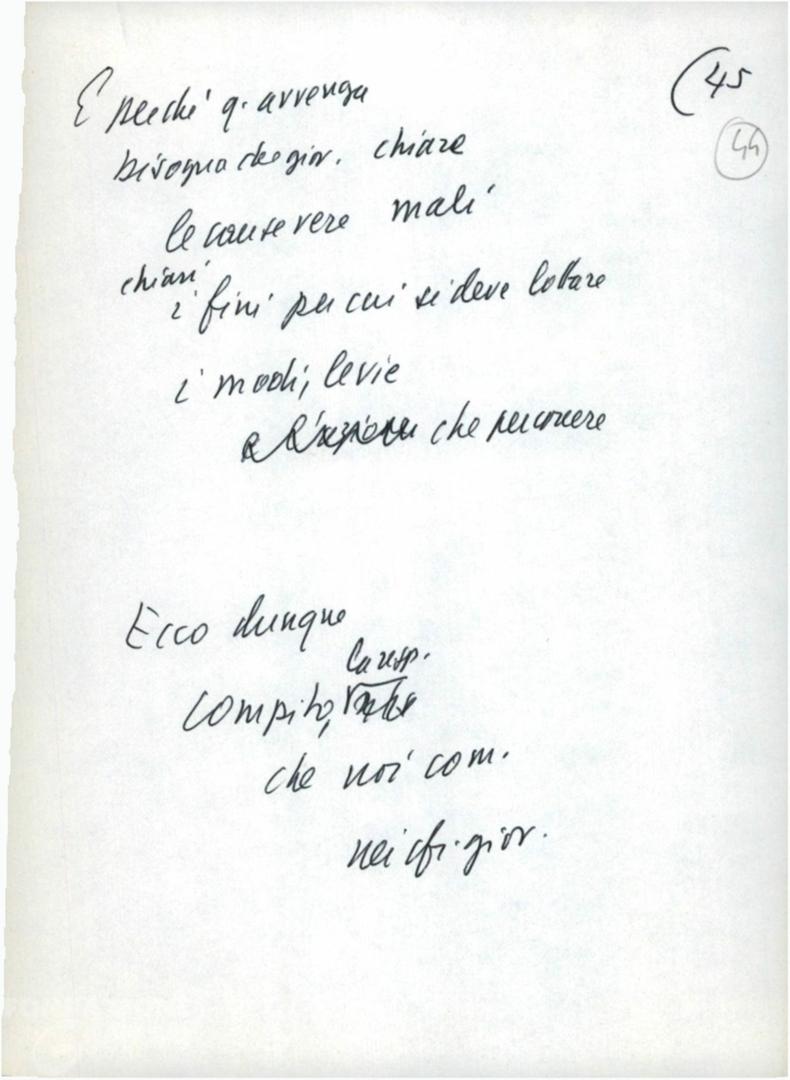 (45
44
E perché q. avvenga
bisogna che gior. chiare
le cause vere mali
chiari
i fini per cui si deve lottare
i modi, le vie
che percorrere
Ecco dunque
la resp.
compito,
che noi com.
nei cfr. gior.